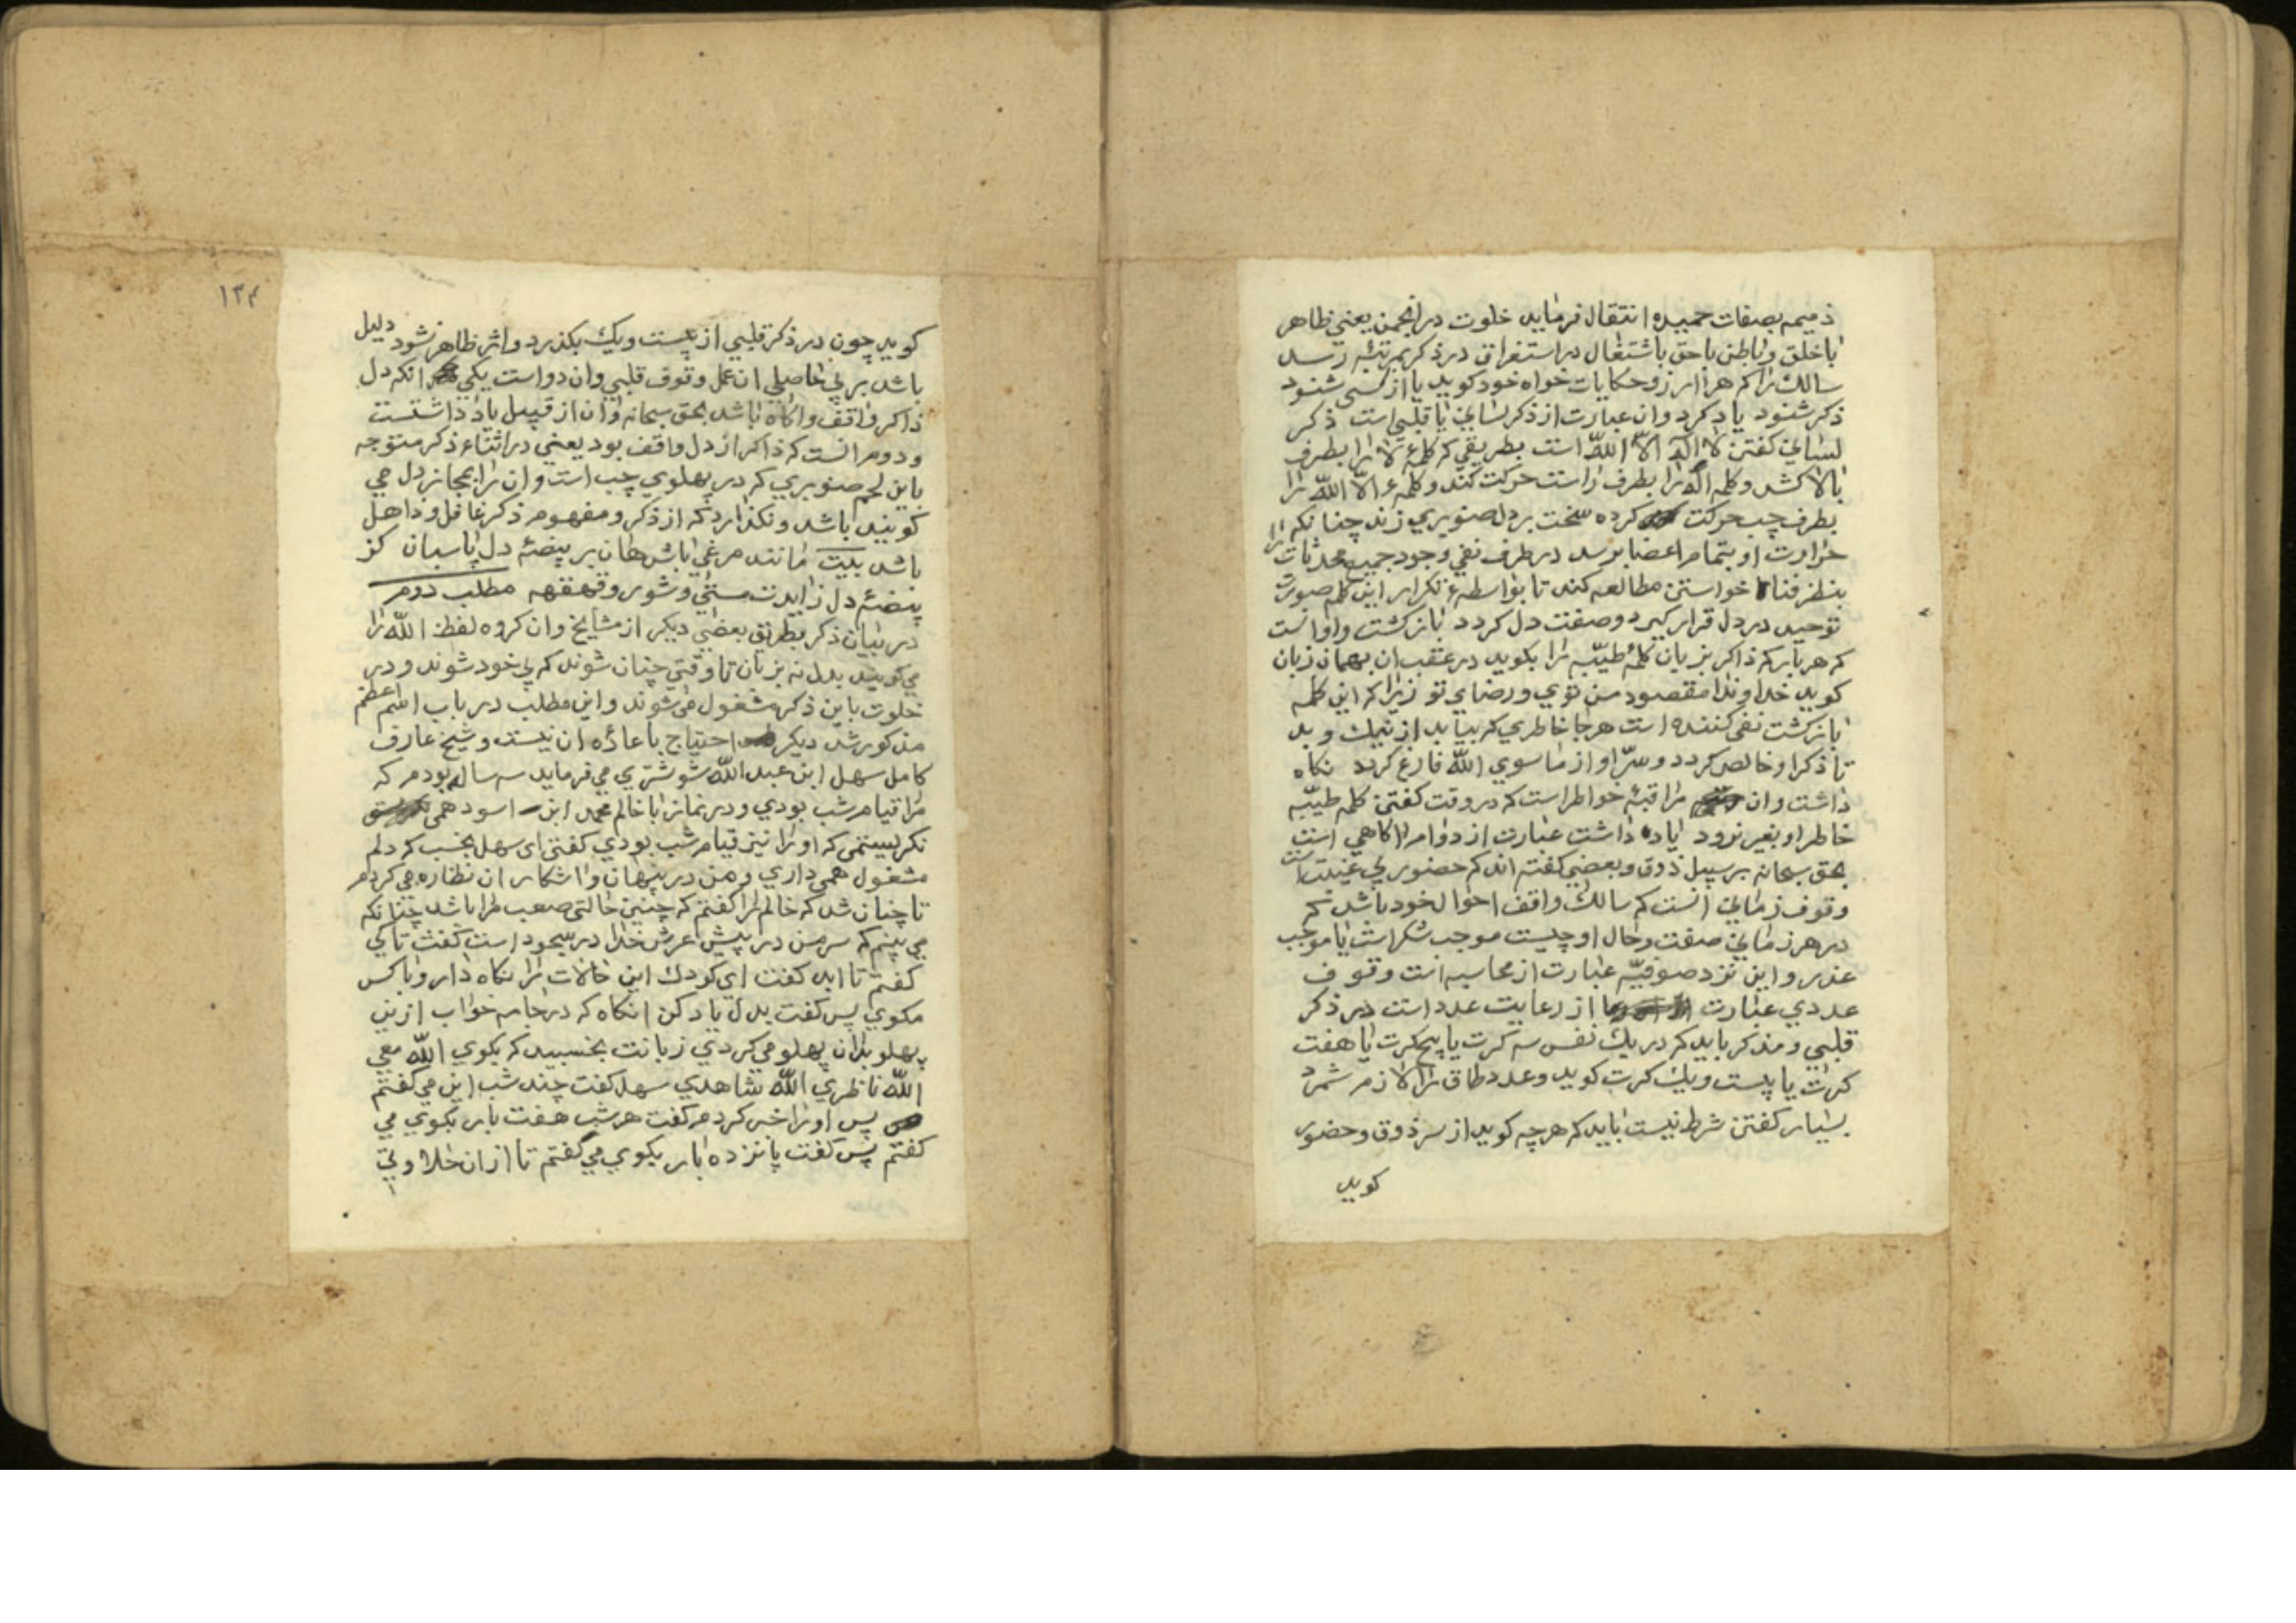 ذميمه بصفات حميده انتقال فرمايد خلوت در انجمن يعني ظاهر
با خلق و باطن با حق باشتغال در استغراق در ذكر بمرتبه رسد
سالك را كه هر اواز و حكايات خواه خود كويد يا از كسي شنود
ذكر شنود ياد كرد و ان عبارت از ذكر لساني يا قلبي است ذكر
لساني كفتن لا اله الا الله است بطريقي كه كلمۀ لا را بطرف
بالا كشد و كلمه اله را بطرف راست حركت كند و كلمۀ الا الله را
بطرف چپ حركت كرده سخت بر دل صنوبري زند چنانكه
حرارت او بتمام اعضا برسد در طرف نفي وجود جميع محدثات را
بنظر فنا خواستن مطالعه كند تا بواسطۀ تكرار اين كلمه صورت
توحيد در دل قرار كيرد و صفت دل كردد باز كشت و او انست
كه هر بار كه ذاكر بزبان كلمۀ طيبه را بكويد در عقب ان بهمان زبان
كويد خداوندا مقصود من توي و رضاي تو زيرا كه اين كلمه
باز كشت نفي كننده است هر جا خاطري كه بيايد از نيك و بد
تا ذكر او خالص كردد و سر او از ما سوي الله فارغ كردد نكاه
داشت و ان مراقبۀ خواطر است كه در وقت كفتن كلمه طيبه
خاطر او بغير نرود ياد داشت عبارت از دوام اكاهي است
بحق سبحانه بر سبيل ذوق و بعضي كفته اند كه حضور بي غيبت است
وقوف زماني انست كه سالك واقف احوال خود باشد كه
در هر زماني صفت و حال او چيست موجب شكر است يا موجب
عذر و اين نزد صوفيه عبارت از محاسبه است وقوف
عددي عبارت از رعايت عدد است در ذكر
قلبي و مذكر بايد كه در يك نفس سه كرت يا پنج كرت يا هفت
كرت يا بيست و يك كرت كويد و عدد طاق را لازم شمرد
بسيار كفتن شرط نيست بايد كه هر چه كويد از سر ذوق و حضور
كويد
١٣٤
كويد چون در ذكر قلبي از بيست و يك بكذرد و اثر ظاهر نشود دليل
باشد بر بي حاصلي ان عمل وقوف قلبي و ان دو است يكي انكه دل
ذاكر واقف و اكاه باشد بحق سبحانه و ان از قبيل ياد داشتست
و دوم انست كه ذاكر از دل واقف بود يعني در اثناء ذكر متوجه
باين لحم صنوبري كه در پهلوي چپ است و ان را بمجاز دل مي
كويند باشد و نكذارد كه از ذكر و مفهوم ذكر غافل و ذاهل
باشد بيت مانند مرغي باش هان بر بيضۀ دل پاسبان كز
بيضۀ دل زايدت مستي و شور و قهقهه مطلب دوم
در بيان ذكر بطريق بعضي ديكر از مشايخ و ان كروه لفظ الله را
مي كويند بدل نه بزبان تا وقتي چنان شوند كه بي خود شوند و در
خلوت باين ذكر مشغول مي شوند و اين مطلب در باب اسم اعظم
مذكور شد ديكر احتياج باعادۀ ان نيست و شيخ عارف
كامل سهل ابن عبد الله شوشتري مي فرمايد سه ساله بودم كه
مرا قيام شب بودي و در نماز با خالم محمد ابن اسود همي
نكريستمي كه او را نيز قيام شب بودي كفتي اي سهل بخسب كه دلم
مشغول همي داري و من در پنهان و اشكار ان نظاره مي كردم
تا چنان شد كه خالم را كفتم كه چنين حالتي صعب مرا باشد چنانكه
مي بينم كه سر من در پيش عرش خدا در سجود است كفت تا كي
كفتم تا ابد كفت اي كودك اين حالات را نكاه دار و با كس
مكوي پس كفت بدل ياد كن انكاه كه در جامه خواب ازين
پهلو بدان پهلو مي كردي زبانت بجنبد كه بكوي الله معي
الله ناظري الله شاهدي سهل كفت چند شب اين مي كفتم
پس او را خبر كردم كفت هر شب هفت بار بكوي مي
كفتم پس كفت پانزده بار بكوي مي كفتم تا از ان حلاوتي